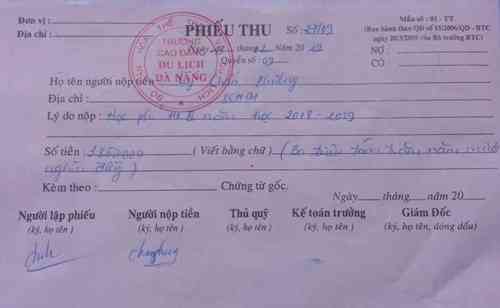 Đơn vị :
Địa chỉ :
PHIẾU THU
Số
Mẫu số : 01 - TT
(Ban hành theo QĐ số 15/2006/QĐ - BTC
ngày 20/3/2006 của Bộ trưởng BTC)
tháng 2 Năm 20 19
Quyển số : 03
NỢ :
CÓ :
BỘ VĂN HÓA THỂ THAO DU LỊCH
TRƯỜNG
CAO ĐẲNG
DU LỊCH
ĐÀ NẴNG
Họ tên người nộp tiền
Địa chỉ :
Lý do nộp : Học phí năm học 2018 - 2019
Số tiền : 3850000 ( Viết bằng chữ ) ( Ba triệu tám trăm năm mươi
nghìn đồng )
Kèm theo : Chứng từ gốc.
Ngày tháng năm 20
Người lập phiếu Người nộp tiền Thủ quỹ Kế toán trưởng Giám Đốc
(ký, họ tên ) (ký, họ tên ) (ký, họ tên ) (ký, họ tên ) (ký, họ tên, đóng dấu)